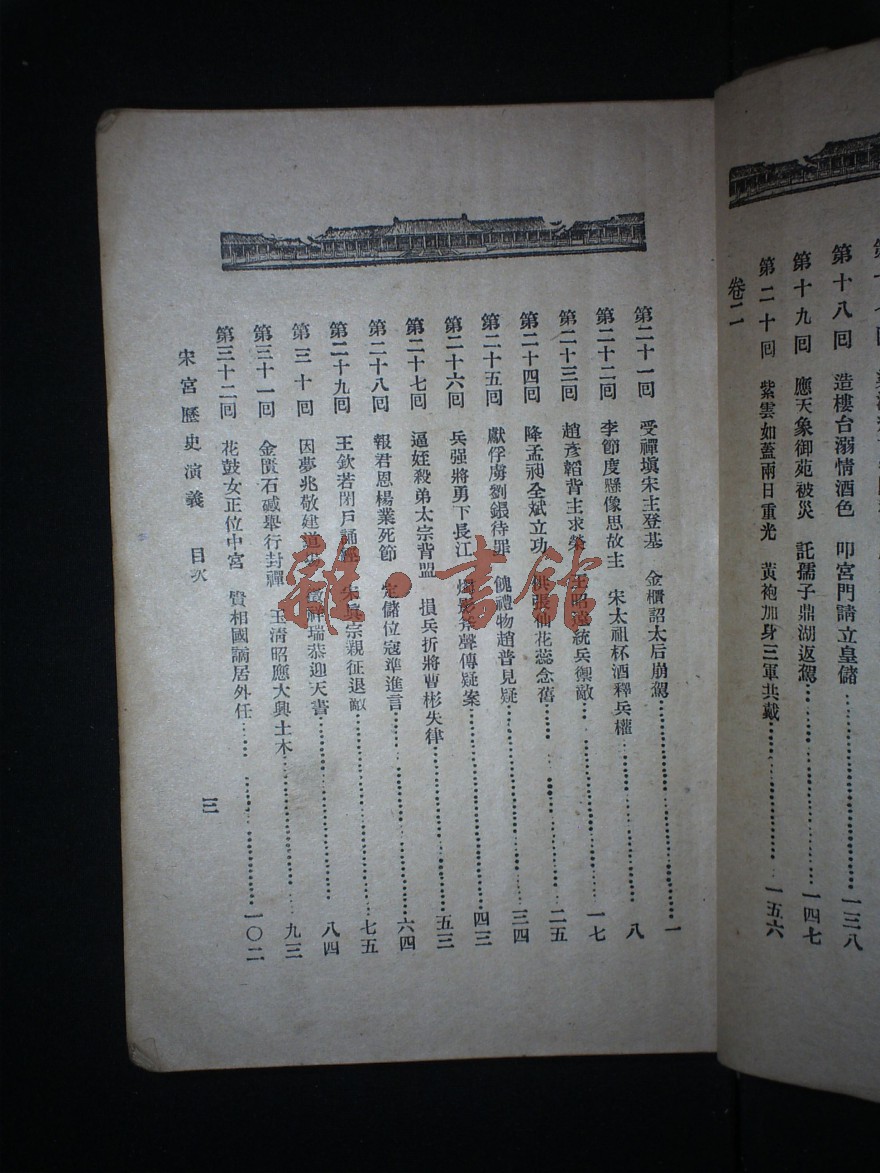 第十八回 造樓台溺情酒色 叩宮門請立皇儲 一三八
第十九回 應天象御苑被災 託孺子鼎湖返駕 一四七
第二十回 紫雲如蓋兩日重光 黃袍加身三軍共戴 一五六
卷二
第二十一回 受禪塡宋主登基 金櫃詔太后崩駕 一
第二十二回 李節度懸像思故主 宋太祖杯酒釋兵權 八
第二十三回 趙彥韜背主求榮 王昭遠統兵禦敵 一七
第二十四回 降孟昶全斌立功 供張仙花蕊念舊 二五
第二十五回 獻俘虜劉鋹待罪 餽禮物趙普見疑 三四
第二十六回 兵强將勇下長江 燭影斧聲傳疑案 四三
第二十七回 逼姪殺弟太宗背盟 損兵折將曹彬失律 五三
第二十八回 報君恩楊業死節 定儲位寇準進言 六四
第二十九回 王欽若閉戶誦經 宋眞宗親征退敵 七五
第三十回 因夢兆敬建道塲 祥瑞恭迎天書 八四
第三十一回 金匱石礆舉行封禪 玉清昭應大興土木 九三
第三十二回 花鼓女正位中宮 賢相國謫居外任 一〇二
宋宮歷史演義 目次 三
雜·書館